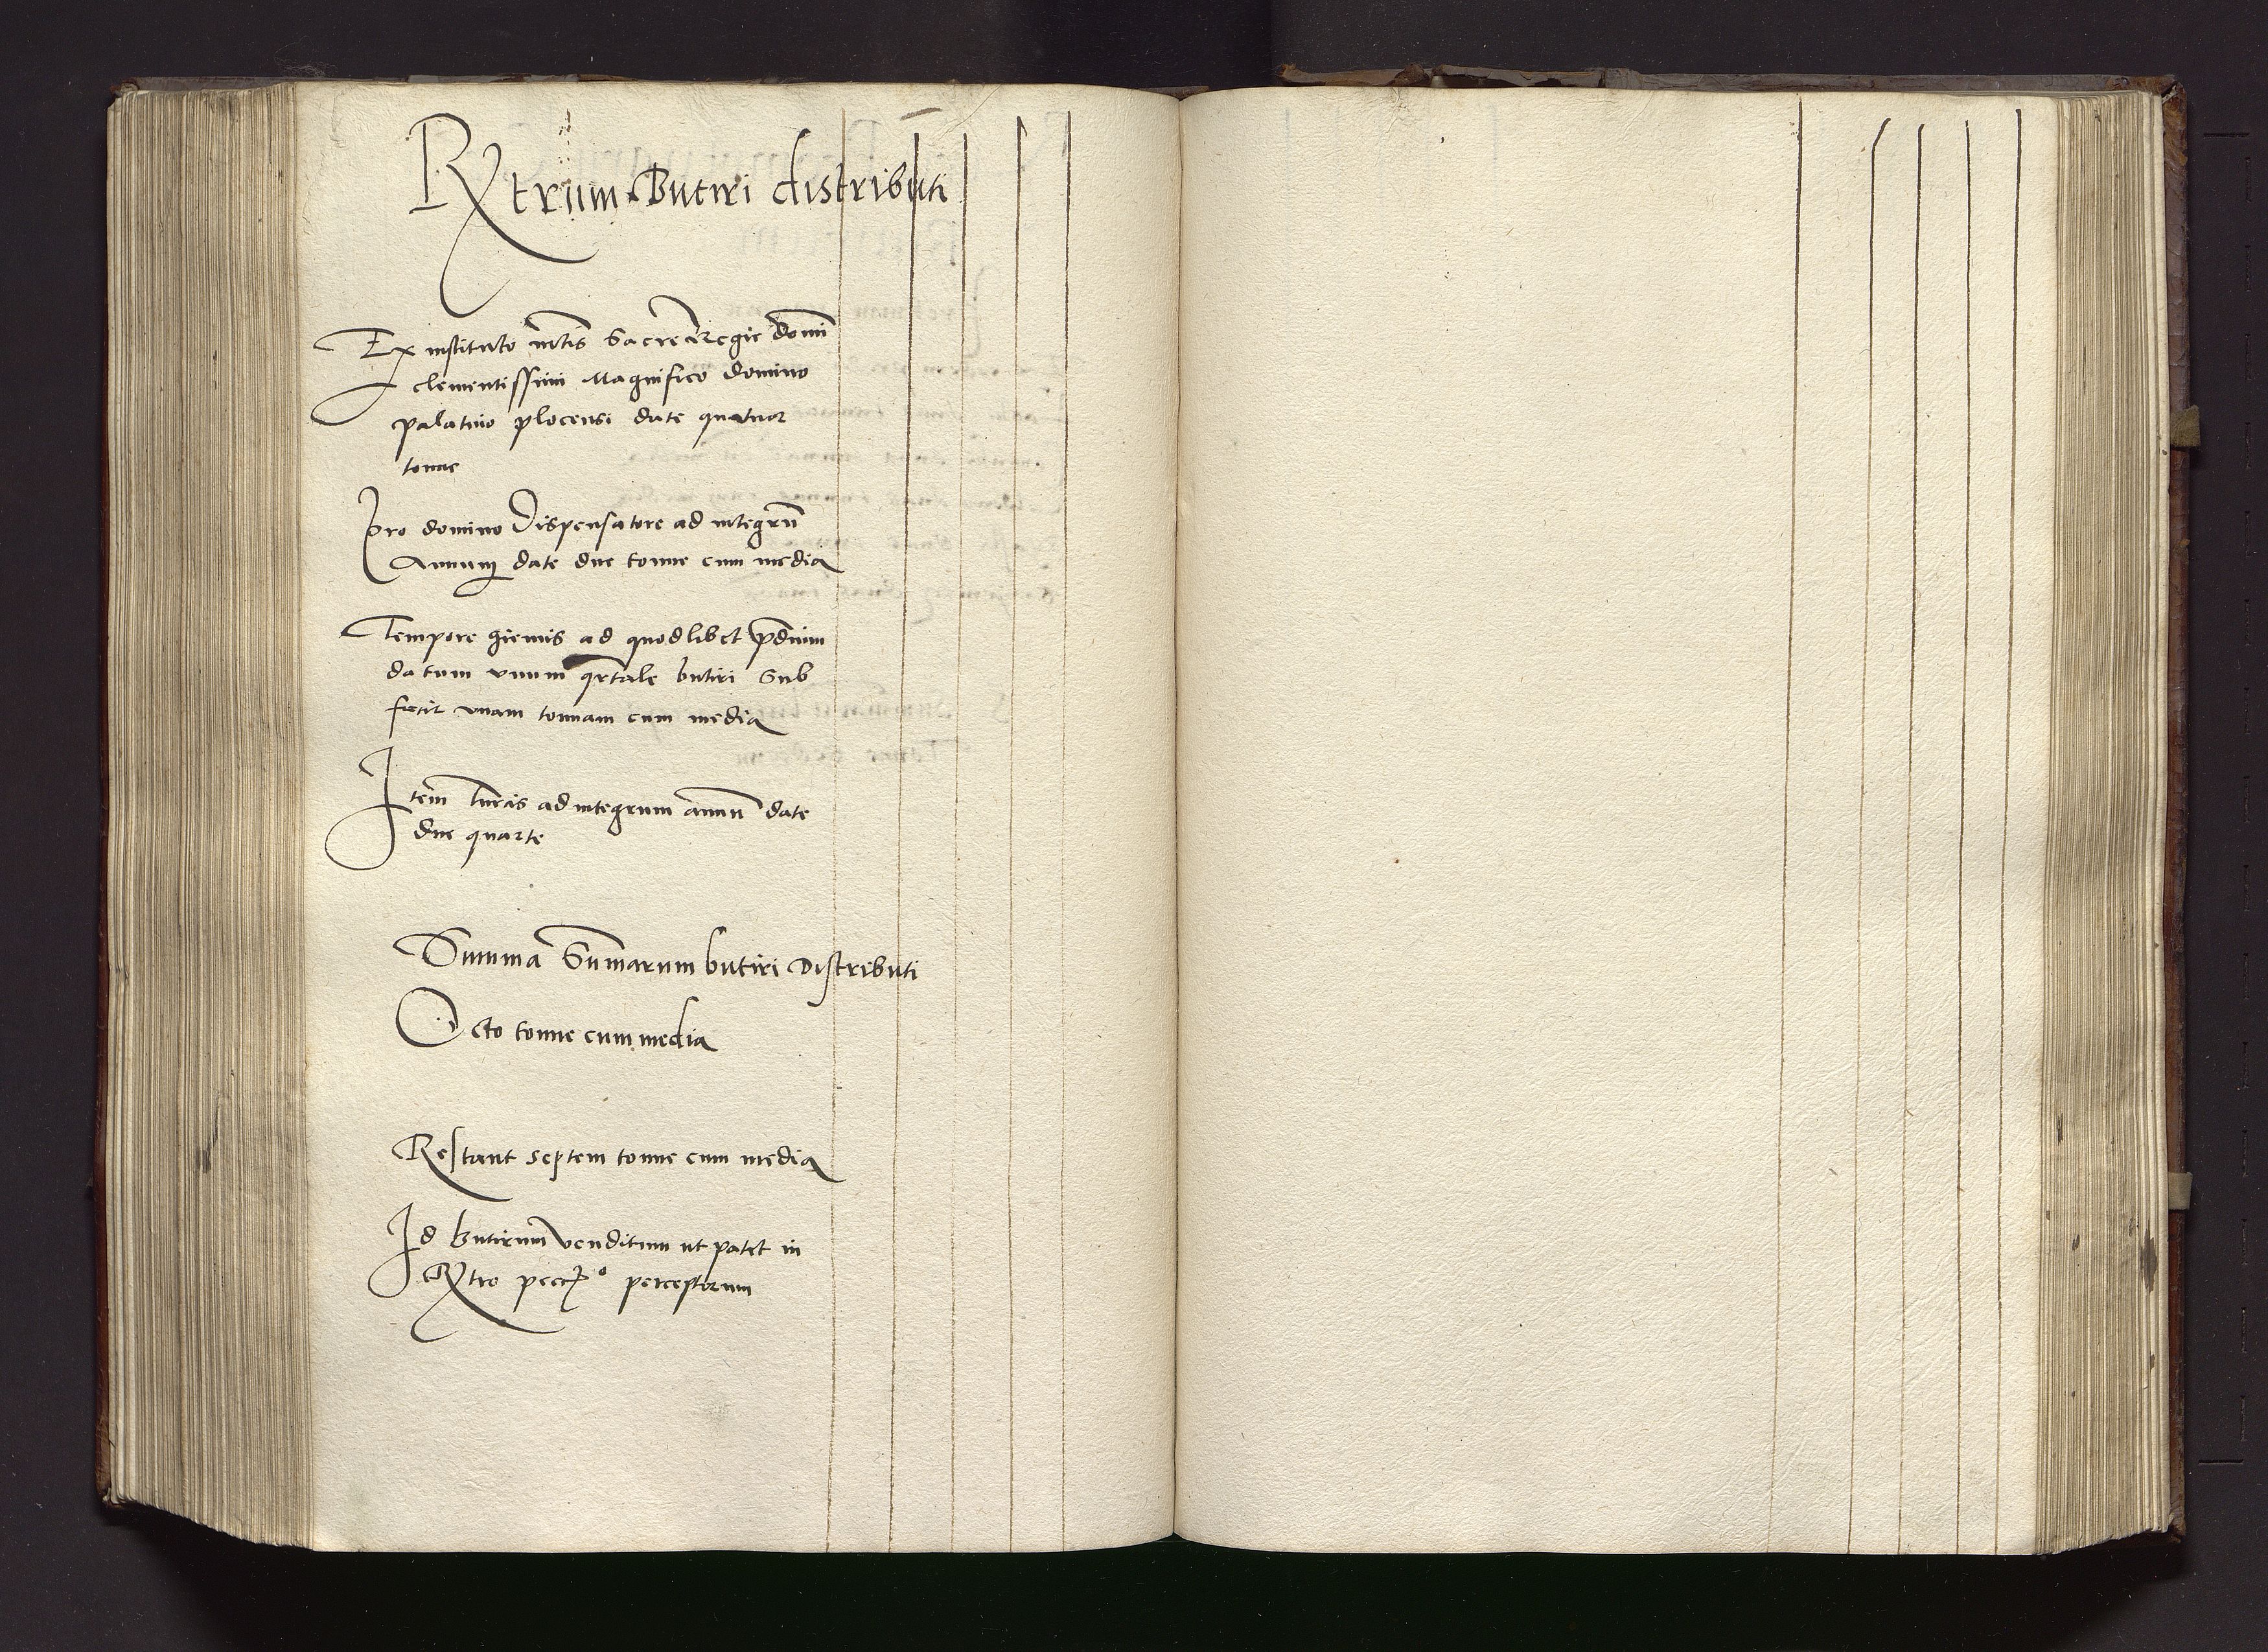 Rxtrum Butiri distributi
Ex instituto mtis Sacre Regie domi
clementissimi Magnifico domino
palatino plocensi date quatuor
tonne
Pro domino Dispensatore ad integrū
Annum date due tonne cum media
Tempore hiemis ad quodlibet pdium
datum vnum qrtale butiri
facit vnam tonnam cum media
Item Turcis ad integrum annū date
due quarte
Summa Summarum butiri Distributi
Octo tonne cum media
Restant septem tonne cum media
Id butirum venditum ut patet in
Rxtro perceptorum